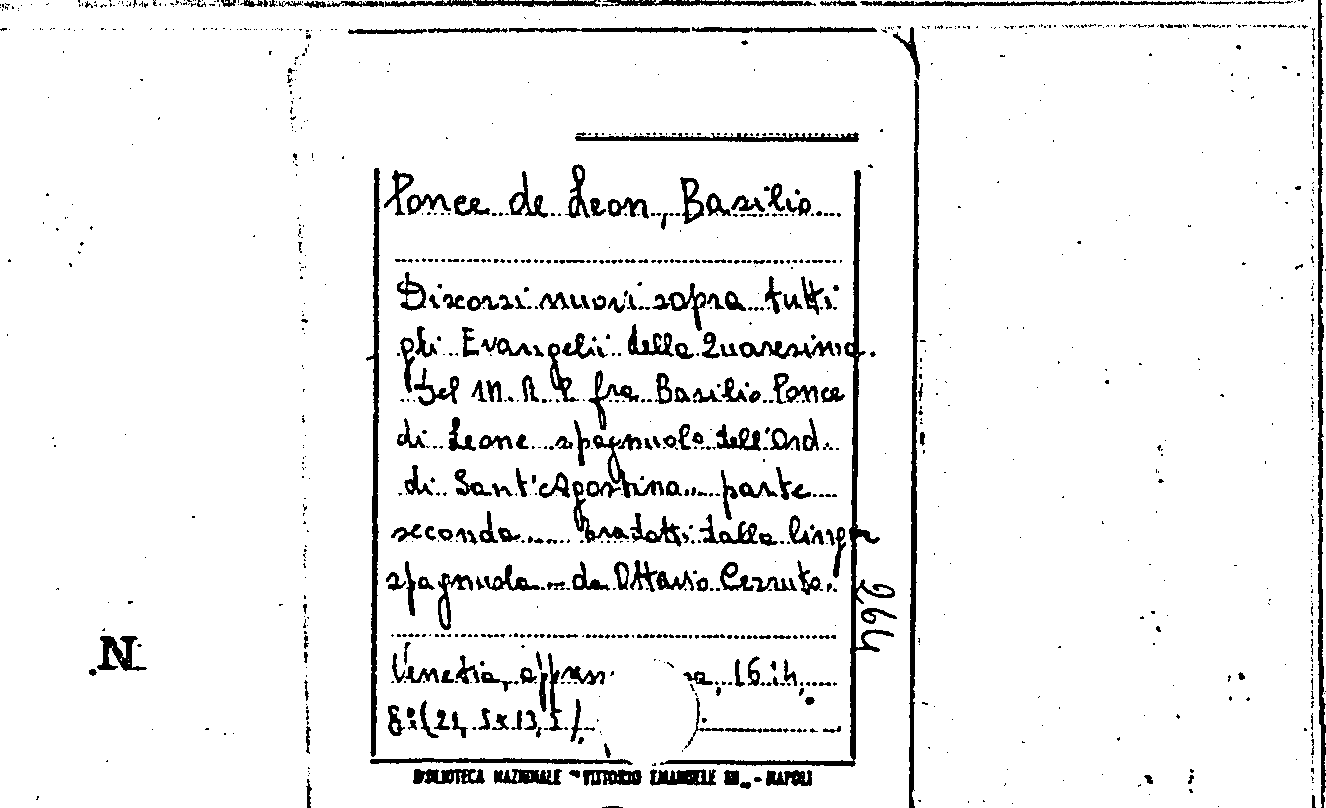 Ponce de Leon, Basilio
Discorsi nuovi sopra tutti
gli Evangelii della Quaresima.
Del M. R. P. fra Basilio Ponce
di Leone spagnuolo dell'Ord.
di Sant'Agostino... parte
seconda.... Tradotti dalla lingua
spagnuola... da Ottavio Cerruto.
264
Venetia,
8:(21,5x13,5).
N
BIBLIOTECA NAZIONALE "VITTORIO EMANUELE III" - NAPOLI